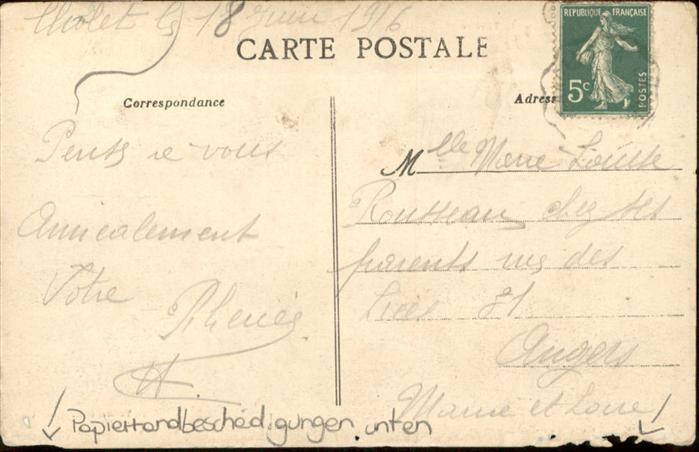 Cholet le 18 Juin 1916
CARTE POSTALE
REPUBLIQUE FRANÇAISE
5c
POSTES
Correspondance
Adress
Pensé à vous
Amicalement
Votre
Mlle Marie Louise
Rousseau chez ses
parents rue des
Lices 21
Angers
Maine et Loire
Papierrandbeschädigungen unten